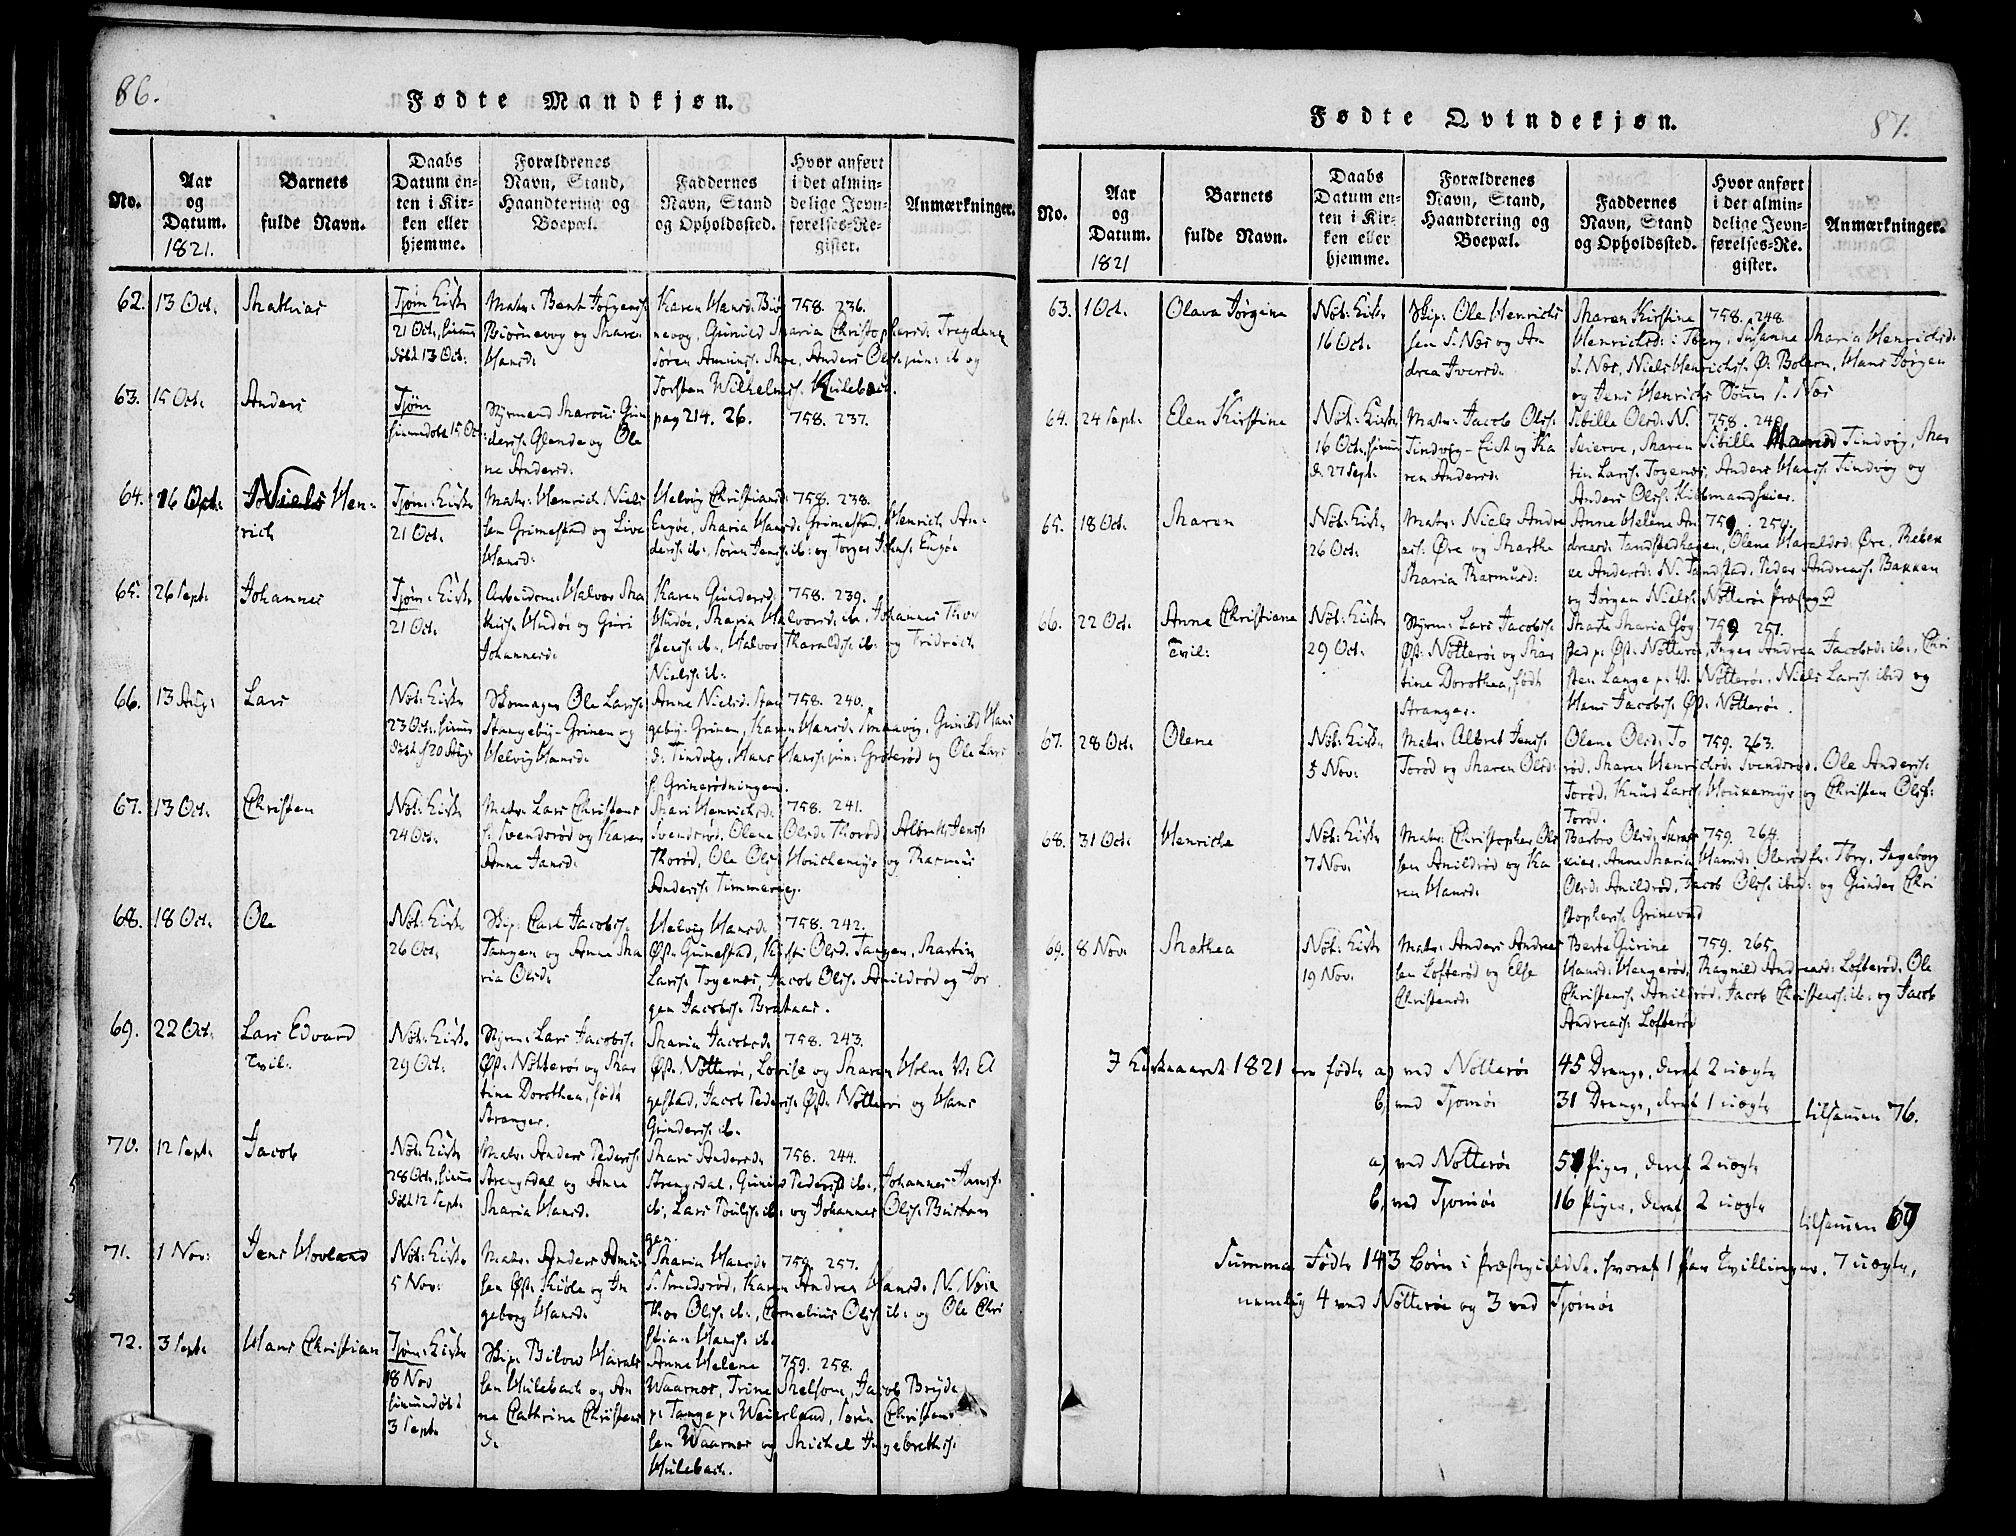 86.
Fødte Mandkjøn.
No.
Aar og Datum. 1821.
Barnets fulde Navn.
Daabs Datum enten i Kirken eller hjemme.
Forældrenes Navn, Stand, Haandtering og Boepæl.
Faddernes Navn, Stand og Opholdssted.
Hvor anført i det almindelige Jevnførelses-Register.
Anmærkninger.
62. 13 Oct. Mathias
Tjøm Kirke
21 Oct.
døbt 13 Oct:
Matr: Bent Jørgens.
Biørnevog og Maren
Hansd:
Karen Hansd: Biør
nevog, Gunild Maria Christophersd:
Søren Amunds: Moe, Anders Ols: jun: ib og
Torsten Wilhelms: Hulebach.
758. 236.
63. 15 Oct. Anders
Tjøm
15 Oct
Styrmand Marcus Gun
ders: Glende og Ole
ne Andersd:
pag 214. 26.
758. 237.
64. 16 Sept: Niels Hen-
rich
Tjøm: Kirke
21 Oct.
Matr: Henrich Niels
sen Grimestad og Live
Hansd:
Helvig Christiansd:
Engøe, Maria Hansd: Grimestad, Henrich An-
ders: ib: Søren Jens: ib: og Torger Johs: Engøe
758. 238.
65. 26 Sept. Johannes
Tjøm: Kirke
21 Oct.
Arbeidsm: Halvor Ma
this: Hudøe og Guri
Johannesd:
Karen Gundersd:
Hudøe, Maria Halvorsd: ib. Johannes Thor
stens: ib., Halvor Haralds: ib: og Fridrich
Niels: ib:
758. 239.
66. 13 Aug: Lars
Nøt: Kirke
23 Oct.
døbt d/20 Aug:
Skomager Ole Lars:
Stangeby-Grinen og
Helvig Hansd:
Anne Nielsd: Stan
geby-Grinen, Karen Hansd: Smaavig, Gunild Hans
d: Tindvig, Hans Hans: jun: Grøterød og Ole Lars
s: Grinerødningen.
758. 240.
67. 13 Oct. Christen
Nøt: Kirke
24 Oct.
Matr: Lars Christens
s: Svendsrød og Karen
Anne Jansd:
Mari Henrichsd:
Svendsrød, Olene Olsd: Thorød, Albret Jens:
Thorød, Ole Ols: Houchemyr og Rasmus
Anders: Timmeraas.
758. 241.
68. 18 Oct. Ole
Nøt: Kirke
26 Oct.
Skip: Carl Jacobs:
Tangen og Anne Ma
ria Olsd:
Helvig Hansd:
Øst: Grimestad, Kirsti Olsd: Tangen, Martin
Lars: Togenes, Jacob Ols: Anildrød og Jør
gen Jacobs: Bratnas.
758. 242.
69. 22 Oct. Lars Edvard
Tvil:
Nøt: Kirke
29 Oct.
Styrm: Lars Jacobs:
Øst: Nøtterøe og Mar
tine Dorothea, født
Stranger.
Maria Jacobsd:
Øst: Nøtterøe, Lovise og Maren Holm V: El
gestad, Jacob Peders: Øst: Nøtterøe og Hans
Gunders: ib.
758. 243.
70. 12 Sept. Jacob
Nøt: Kirke
28 Oct.
døbt 12 Sept.
Matr: Anders Peders:
Strengsdal og Anne
Maria Hansd:
Mari Andersd:
Strengsdal, Gunild Pedersd: ib., Johannes Jans:
ib:, Lars Pouls: ib: og Johannes Ols: Burstan
gen.
758. 244.
71. 1 Nov: Jens Hovland
Nøt: Kirke
5 Nov:
Matr: Anders Amun
sen Øst: Kiøle og In
geborg Hansd:
Maria Hansd:
S. Smidsrød, Karen Andrea Hansd: N. Næs
Thor Ols: ib., Cornelius Ols: ib: og Ole Chri
stian Hans: ib.
759. 257.
72. 3 Sept. Hans Christian
Tjøm: Kirke
18 Nov
3 Sept.
Skip: Bilow Harals
sen Hulebach og An
ne Cathrine Christens
d:
Anne Helene
Waarnes, Trine Melsom, Jacob Bryde
p: Tange p: Weierland, Søren Christen
sen Waarnes og Michel Ingebreths:
Hulebach.
759. 258.
Fødte Qvindekjøn.
87.
No.
Aar og Datum. 1821
Barnets fulde Navn.
Daabs Datum enten i Kirken eller hjemme.
Forældrenes Navn, Stand, Haandtering og Boepæl.
Faddernes Navn, Stand og Opholdssted.
Hvor anført i det almindelige Jevnførelses-Register.
Anmærkninger.
63. 1 Oct. Olava Jørgine
Nøt: Kirke
16 Oct.
Skip: Ole Henrichs
sen S. Næs og An
drea Iversd:
Maren Kirstine
Henrichsd: i Tberg, Susanne Maria Henrichsd:
S. Næs, Niels Henrichs: Ø: Bolern, Hans Jørgen
og Jens Henrichs Sønner S. Næs
758. 248.
64. 24 Sept. Elen Kirstine
Nøt: Kirke
16 Oct.
d. 27 Sept.
Matr: Jacob Ols:
Tindvig-Eist og Ka
ren Andersd:
Sibille Olsd: N.
Seierve, Maren Sibille Hansd Tindvig, Mar
tin Lars: Togenes, Anders Hans: Tindvig og
Anders Ols: Kiøbmandskier.
758. 249.
65. 18 Oct. Maren
Nøt: Kirke
26 Oct.
Matr: Niels Andre
as: Øre og Marthe
Maria Rasmusd:
Anne Helene An
dreasd: Tandstedhagen, Olene Haraldsd: Øre, Rebek
ke Andersd: N: Tandstad, Peder Andreas: Bakken
og Jørgen Niels: Nøtterøe Præstegd
759. 250.
66. 22 Oct. Anne Christiane
Tvil:
Nøt: Kirke
29 Oct.
Styrm: Lars Jacobs:
Øst: Nøtterøe og Mar
tine Dorothea, født
Stranger.
Marte Maria Gog
stad p: Øst: Nøtterøe, Inger Andrea Jacobsd: ib., Chri
sten Lange p: V. Nøtterøe, Niels Lars: ibid og
Hans Jacobs: Øst: Nøtterøe.
759. 251.
67. 28 Oct. Olene
Nøt: Kirke
5 Nov:
Matr: Albret Jens:
Torød og Maren Olsd:
Olene Olsd: To
rød, Maren Henrichsd: Svendsrød, Ole Anders:
Torød, Knud Lars: Houkemyr og Christen Ols:
Torød.
759. 263.
68. 31 Oct. Henriche
Nøt: Kirke
7 Nov.
Matr: Christopher Ols
sen Anildrød og Ka
ren Hansd:
Barbro Olsd:
Anne Maria Hansd: Olerød fr: Tbrg, Ingeborg
Olsd: Anildrød, Jacob Ols: ibid: og Gunder Chri
stophers: Grinevad
759. 264.
69. 8 Nov. Mathea
Nøt: Kirke
19 Nov.
Matr: Anders Andreas
sen Lofterød og Else
Christensd:
Berte Gurine
Hansd: Hengerød, Ragnild Andreasd: Lofterød, Ole
Christens: Anildrød, Jacob Christens: ib. og Jacob
Andreas: Lofterød
759. 265.
I Kirkeaaret 1821 ere fødte a) ved Nøtterøe 45 Drenge, deraf 2 uægte
b) ved Tjømøe 31 Drenge, deraf 1 uægte
tilsamen 76.
a) ved Nøtterøe 51 Piger, deraf 2 uægte
b) ved Tjømøe 16 Piger, deraf 2 uægte
tilsamen 67
Summa Fødte 143 Børn i Præstegieldet, hvoraf 1 par Tvillinger, 7 uægte,
nemlig 4 ved Nøtterøe og 3 ved Tjømøe